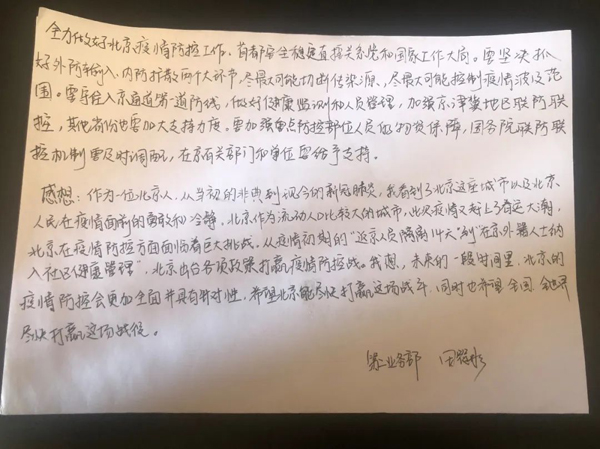 全力做好北京疫情防控工作，首都安全稳定直接关系党和国家工作大局。要坚决抓
好外防输入、内防扩散两个大环节，尽最大可能切断传染源，尽最大可能控制疫情波及范
围。要守住入京通道第一道防线，做好健康监测和人员管理，加强京津冀地区联防联
控，其他省份也要加大支持力度。要加强重点防控部位人员的物资保障，国务院联防联
控机制要及时调配，在京有关部门和单位要给予支持。
感想：作为一位北京人，从当初的非典到现今的新冠肺炎，我看到了北京这座城市以及北京
人民在疫情面前的勇敢和冷静，北京作为流动人口比较大的城市，此次疫情又赶上了春运大潮，
北京在疫情防控方面面临着巨大挑战，从疫情初期的“返京人员隔离14天”到“在京外籍人士纳
入社区健康管理”，北京出台各项政策打赢疫情防控战。我想，未来的一段时间里，北京的
疫情防控会更加全面并具有针对性，希望北京能尽快打赢这场战斗，同时也希望全国、全世界
尽快打赢这场战役。
业务部 田